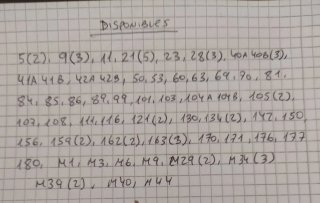 DISPONIBLES
5(2), 9(3), 11, 21(5), 23, 28(3), 40A 40B(3),
41A 41B, 42A 42B, 50, 53, 60, 63, 69, 70, 81,
84, 85, 86, 89, 99, 101, 103, 104A 104B, 105(2),
107, 108, 111, 116, 121(2), 130, 134(2), 147, 150,
156, 159(2), 162(2), 163(3), 170, 171, 176, 177
180, M1, M3, M6, M9, M29(2), M34(3)
M39(2), M40, M44